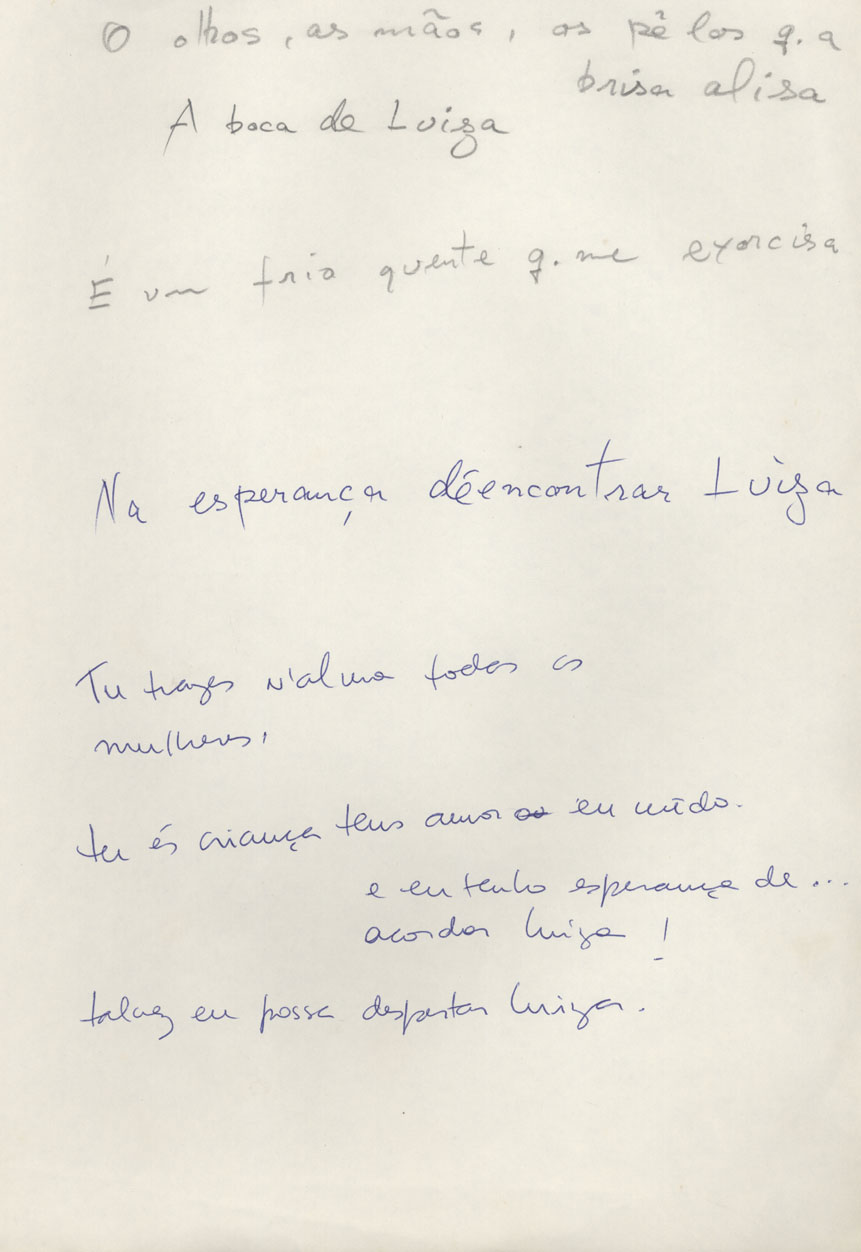 O olhos, as mãos, os pêlos q. a
brisa alisa
A boca de Luiza
É um frio quente q. me exorcisa
Na esperança de encontrar Luiza
Tu trazes n'alma todas as
mulheres,
tu és criança tens amor eu mêdo.
e eu tenho esperança de...
acordar Luiza !
talvez eu possa despertar Luiza.